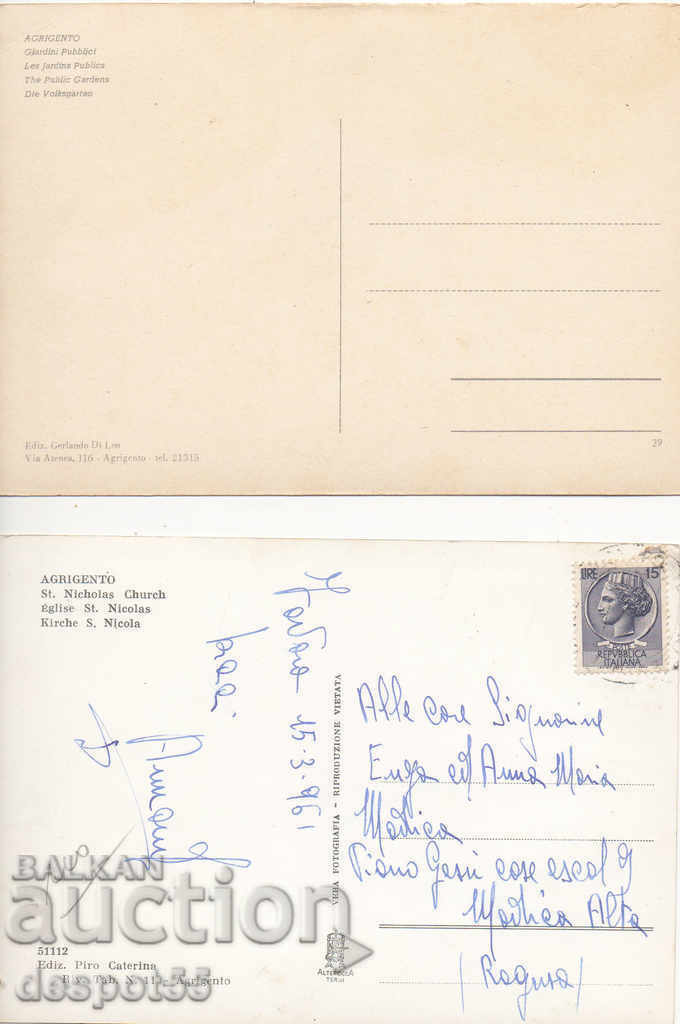 AGRIGENTO
Giardini Pubblici
Les Jardins Publics
The Public Gardens
Die Volksgarten
Ediz. Gerlando Di Leo
Via Atenea, 116 - Agrigento - tel. 21315
29
AGRIGENTO
St. Nicholas Church
Église St. Nicolas
Kirche S. Nicola
15-3-961
VERA FOTOGRAFIA - RIPRODUZIONE VIETATA
LIRE 15
POSTE
REPVBBLICA
ITALIANA
Alle care Signorine
Enza ed Anna Maria
Modica
Piano Gesù case escal 9
Modica Alta
(Ragusa)
51112
Ediz. Piro Caterina
Riv. Tab. N. 11 - Agrigento
ALTEROCCA
TERNI
BALKAN
auction
despot55